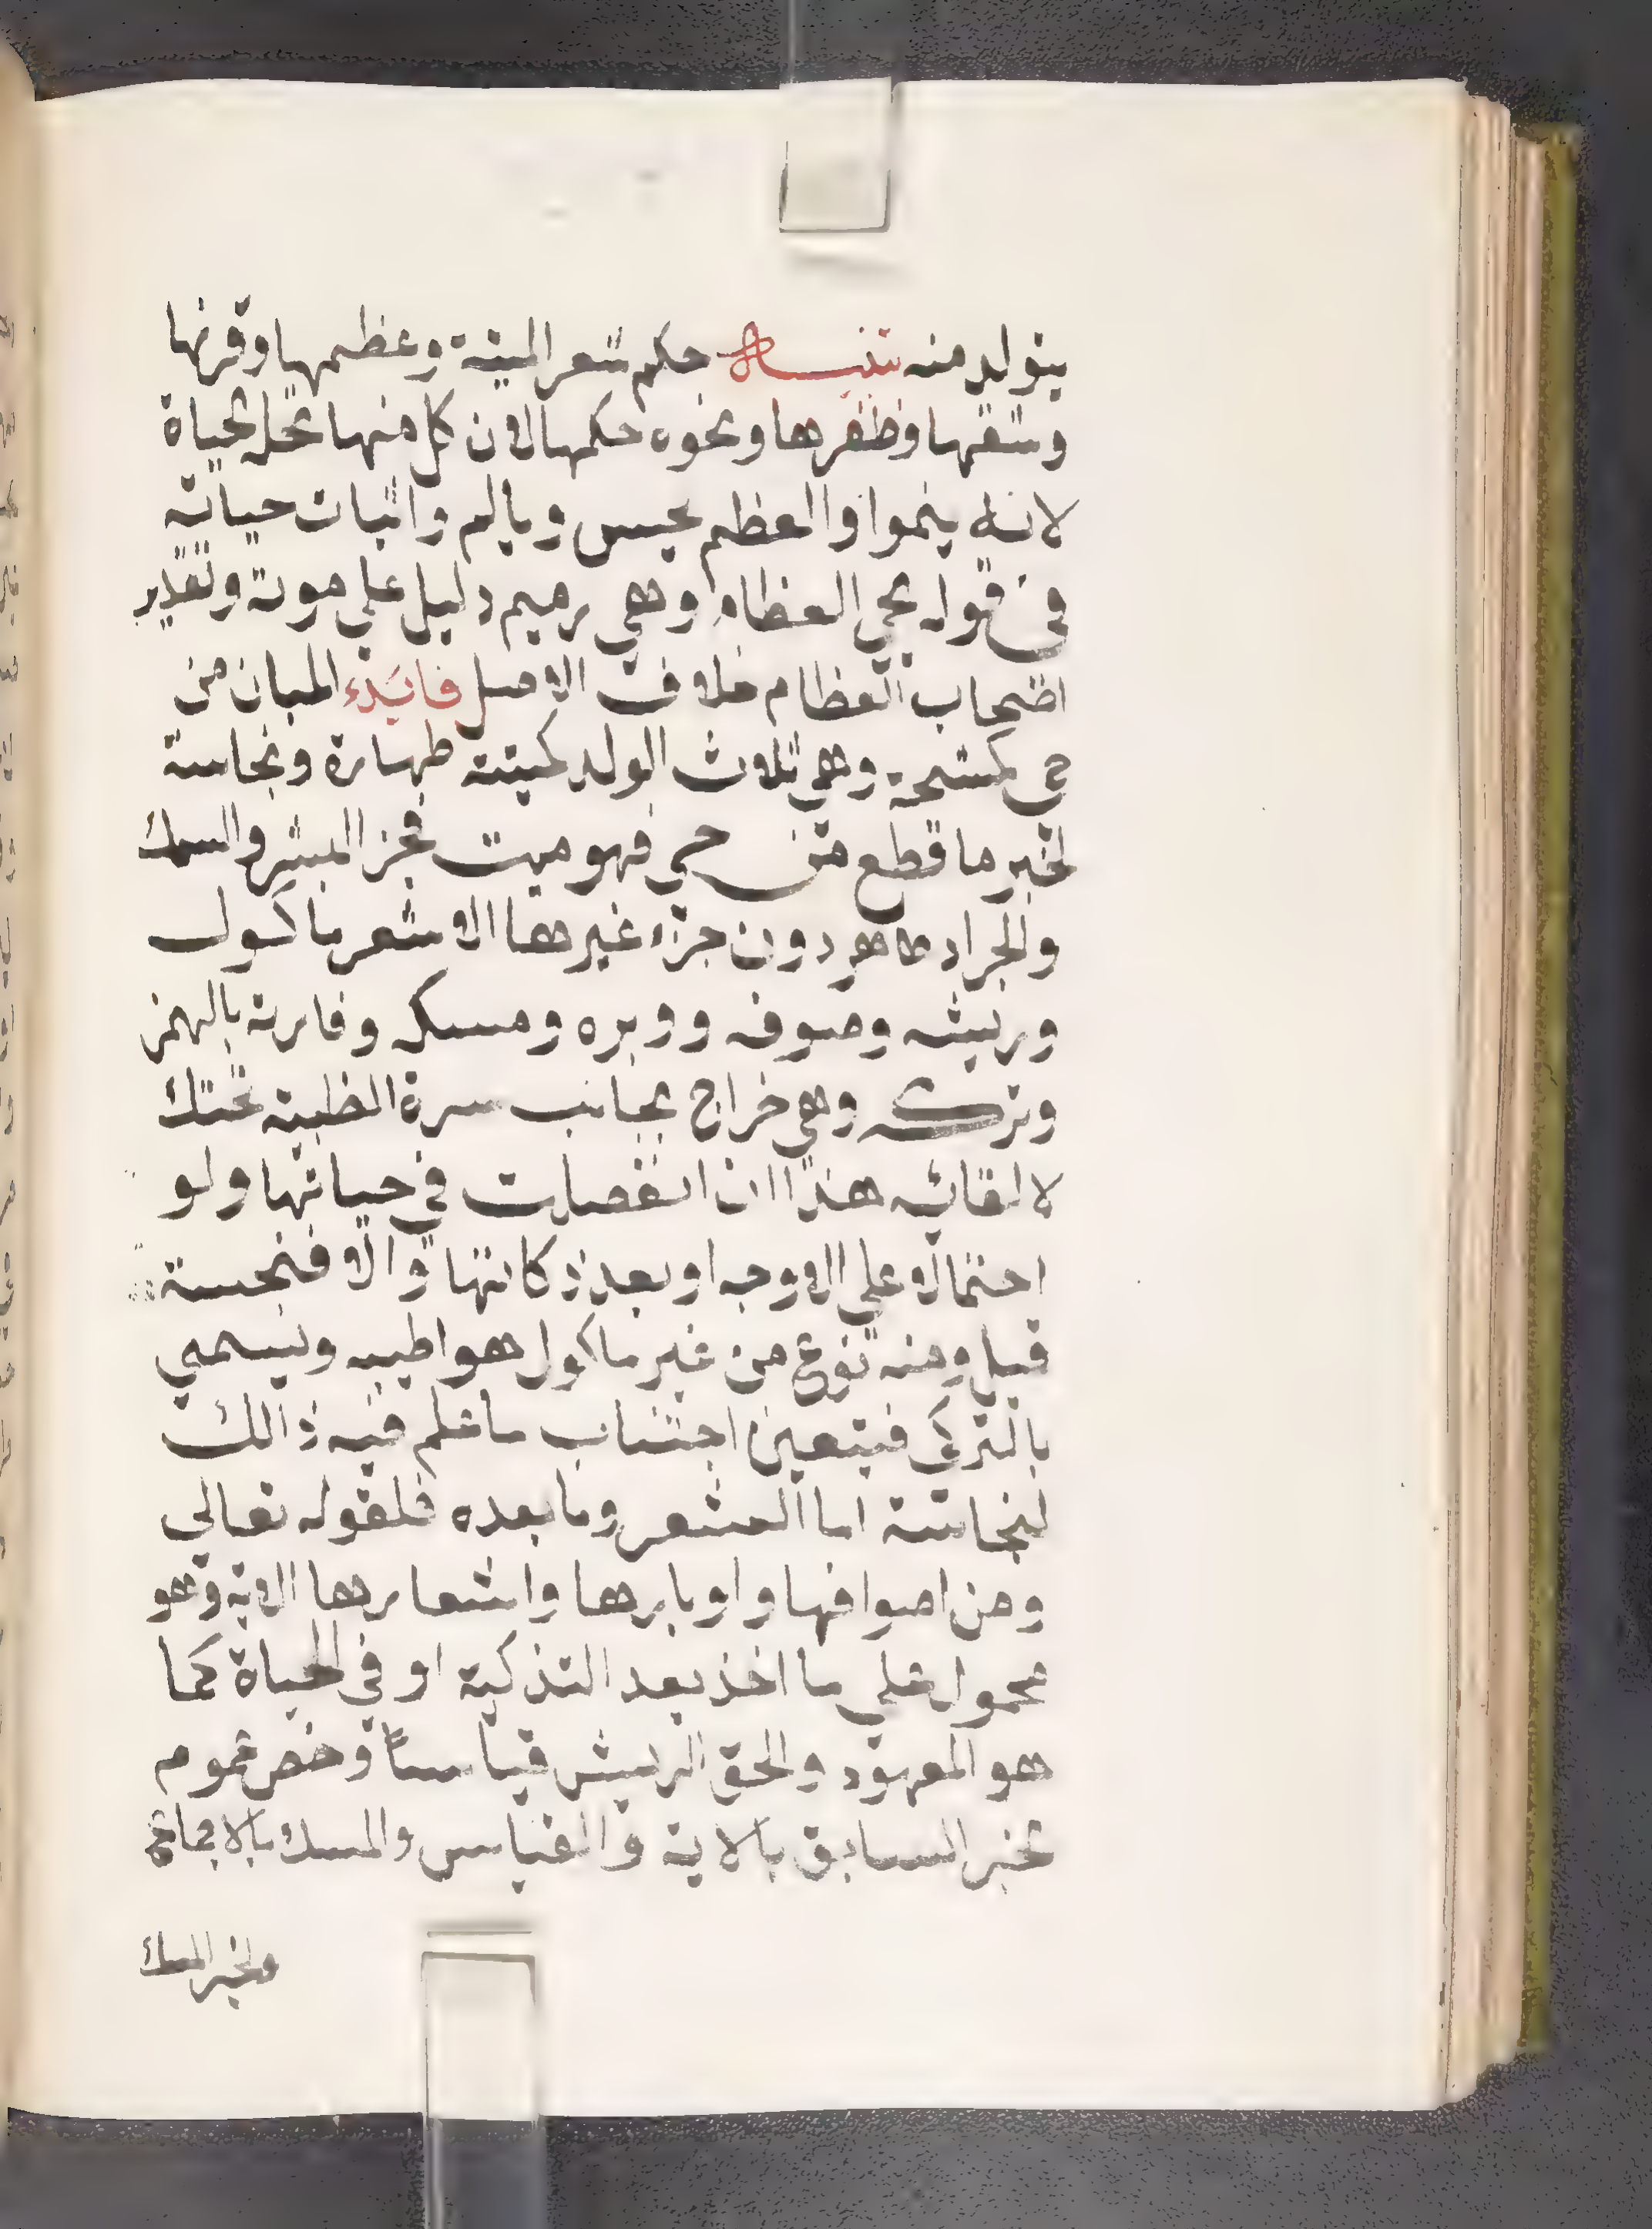 يتولد منه تنبيه حكم شعر الميتة وعظمها وقرنها
وشقها وظفرها ونحوه حكمها لان كل منها تحله لحياة
لانه ينموا والعظم يحس ويالم واثبات حياته
في قوله يحي العظام وهي رميم دليل علي موته وتقدير
اصحاب العظام خلاف الاصل فايدة المبان من
حي كمشحة وهي ثلاث الولد كميتته طهارة ونجاسة
لخبر ما قطع من حي فهو ميت فجز البشر والسمك
والجراد طاهر دون جزء غيرها الا شعر ماكول
وريشه وصوفه ووبره ومسكه وفارته بالهمز
وتركه وهي خراج بجانب سرة الظبية تحتك
لالقائه هذا ان انفصلت في حياتها ولو
احتمالا علي الاوجه او بعد ذكاتها والا فنجسة
قيل ومنه نوع من غير ماكول هو اطيبه ويسمي
بالتركي فيتعين اجتناب ما علم فيه ذالك
لنجاسته اما الشعر وما بعده فلقوله تعالي
ومن اصوافها واوبارها واشعارها الاية وهو
محمول علي ما اخذ بعد التذكية او في الحياة كما
هو المعهود والحق الريش قياسا وخص عموم
لخبر السابق بالاية والقياس والمسك بالاجماع
ولخبر المسك